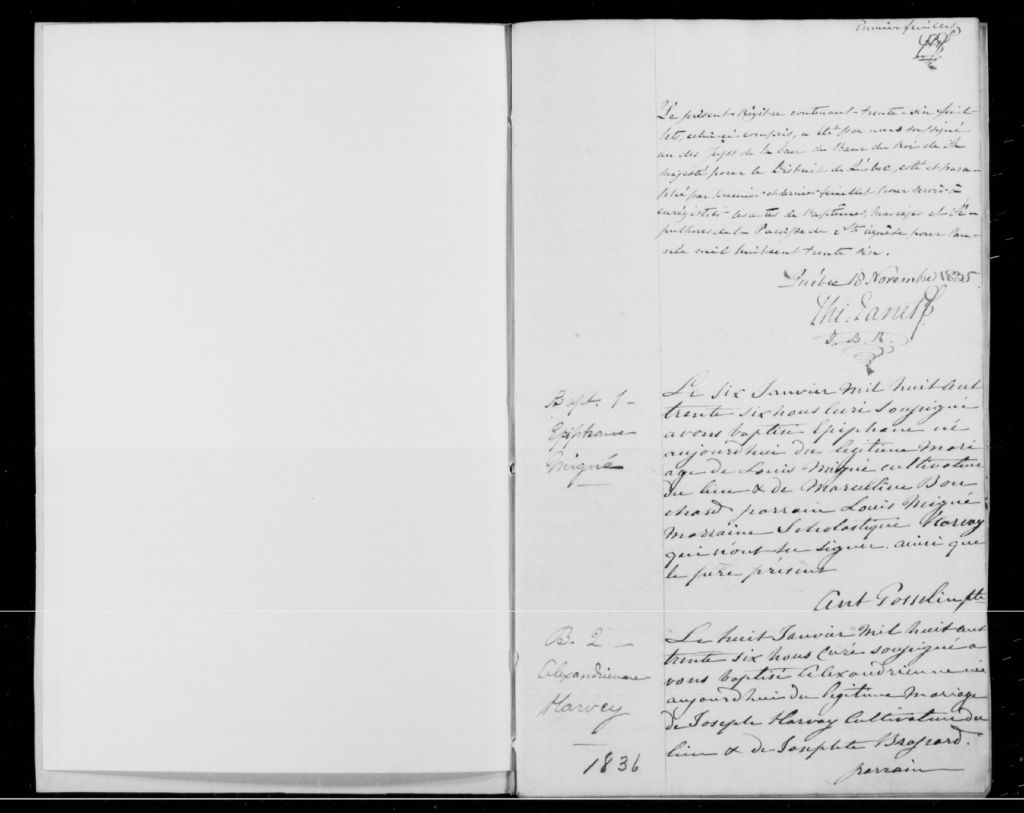 Premier feuillet
Le présent Régistre contenant trente-six feuil-
lets, celui-ci compris, a été par nous soussigné
un des Juges de la Cour du Banc du Roi de Sa
majesté pour le District de Québec, coté et para-
phé par premier et dernier feuillet pour servir à
enrégistrer les actes de Baptêmes, Mariages et Sé-
pultures de la Paroisse de pour l'an-
née mil huit cent trente six.
Québec 18 Novembre 1835
J. B. R.
Bapt. 1 -
Epiphane
Migné
Le six Janvier mil huit cent
trente six nous Curé soussigné
avons baptisé Epiphane né
aujourdhui du légitime Mari
age de Louis Migné cultivateur
du lieu & de Marcelline Bou
chard parrain Louis Migné
Marraine Scholastique Harvay
qui n'ont su signer ainsi que
le père présent
Ant Gosselin ptre
B. 2 -
Alexandrienne
Harvey
1836
Le huit Janvier mil huit cent
trente six nous Curé soussigné a
vons baptisé Alexandrienne née
aujourdhui du légitime Mariage
de Joseph Harvay Cultivateur du
lieu & de Josephte Brassard.
parrain